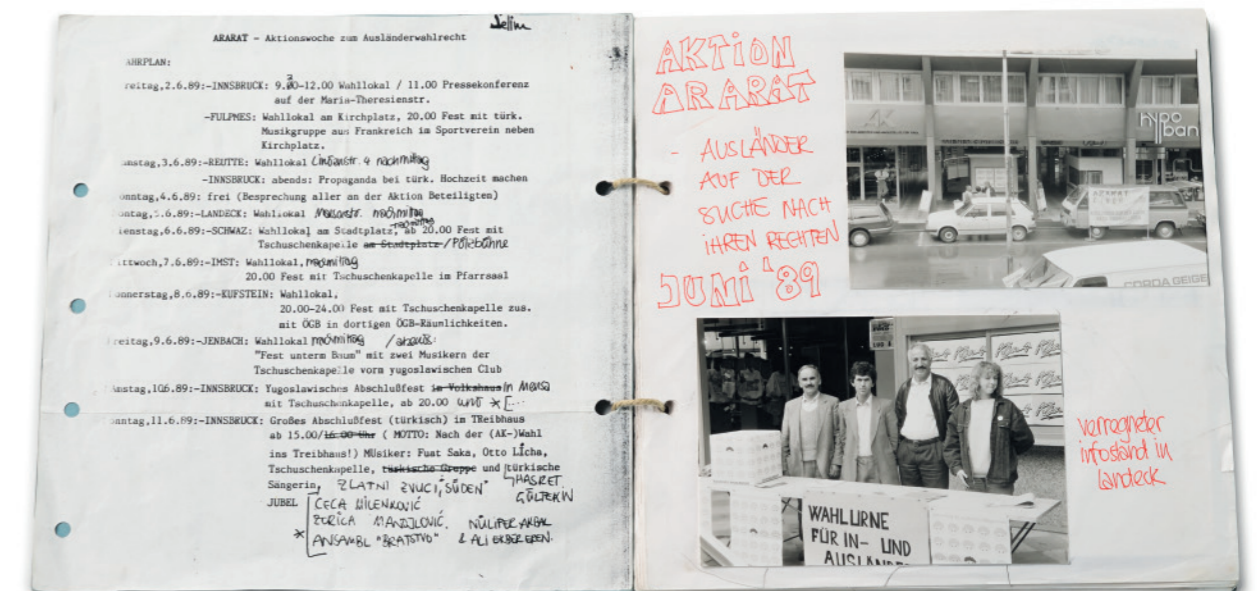 Selim
ARARAT - Aktionswoche zum Ausländerwahlrecht
AHRPLAN:
reitag,2.6.89:-INNSBRUCK: 9.30-12.00 Wahllokal / 11.00 Pressekonferenz
auf der Maria-Theresienstr.
-FULPMES: Wahllokal am Kirchplatz, 20.00 Fest mit türk.
Musikgruppe aus Frankreich im Sportverein neben
Kirchplatz.
mstag,3.6.89:-REUTTE: Wahllokal Lindenstr. 4 nachmittag
-INNSBRUCK: abends: Propaganda bei türk. Hochzeit machen
onntag,4.6.89: frei (Besprechung aller an der Aktion Beteiligten)
ontag,5.6.89:-LANDECK: Wahllokal nachmittag
ienstag,6.6.89:-SCHWAZ: Wahllokal am Stadtplatz, nachmittag ab 20.00 Fest mit
Tschuschenkapelle am Stadtplatz /Pölzbühne
ittwoch,7.6.89:-IMST: Wahllokal, nachmittag
20.00 Fest mit Tschuschenkapelle im Pfarrsaal
onnerstag,8.6.89:-KUFSTEIN: Wahllokal,
20.00-24.00 Fest mit Tschuschenkapelle zus.
mit ÖGB in dortigen ÖGB-Räumlichkeiten.
reitag,9.6.89:-JENBACH: Wahllokal nachmittag / abends:
"Fest unterm Baum" mit zwei Musikern der
Tschuschenkapelle vorm yugoslawischen Club
amstag,106.6.89:-INNSBRUCK: Yugoslawisches Abschlußfest im Volkshaus in Mensa
mit Tschuschenkapelle, ab 20.00 UND * [...
onntag,11.6.89:-INNSBRUCK: Großes Abschlußfest (türkisch) im TReibhaus
ab 15.00/16.00 Uhr ( MOTTO: Nach der (AK-)Wahl
ins Treibhaus!) MUsiker: Fuat Saka, Otto Licha,
Tschuschenkapelle, türkische Gruppe und türkische
Sängerin, ZLATNI ZVUCI, "SÜDEN" HASRET
GÜLTEKIN
JUBEL CECA MILENKOVIĆ
ZORICA NÜLIFER AKBAL
* ANSAMBL "BRATSTVO" & ALI EKBER EREN.
AKTION
ARARAT
- AUSLÄNDER
AUF DER
SUCHE NACH
IHREN RECHTEN
JUNI '89
AK
hypo
ban
ARARAT
CORDA GEIGE
WAHLURNE
FÜR IN- UND
AUSLÄNDE
verregneter
infostand in
Landeck